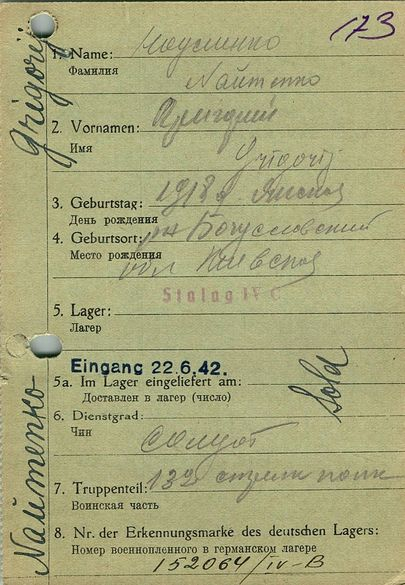 173
Grigorij
1. Name:
Фамилия
Найтенко
2. Vornamen: Григорий
Имя
Grigorij
3. Geburtstag: 1918
День рождения
4. Geburtsort: рн Богуславский
Место рождения обл Киевская
Stalag IV C
5. Lager:
Лагер
Eingang 22.6.42.
5a. Im Lager eingeliefert am:
Доставлен в лагер (число)
Sold
6. Dienstgrad:
Чин
солдат
7. Truppenteil: 132 стрелк полк
Воинская часть
8. Nr. der Erkennungsmarke des deutschen Lagers:
Номер военнопленного в германском лагере
152064/IV-B
Найтенко